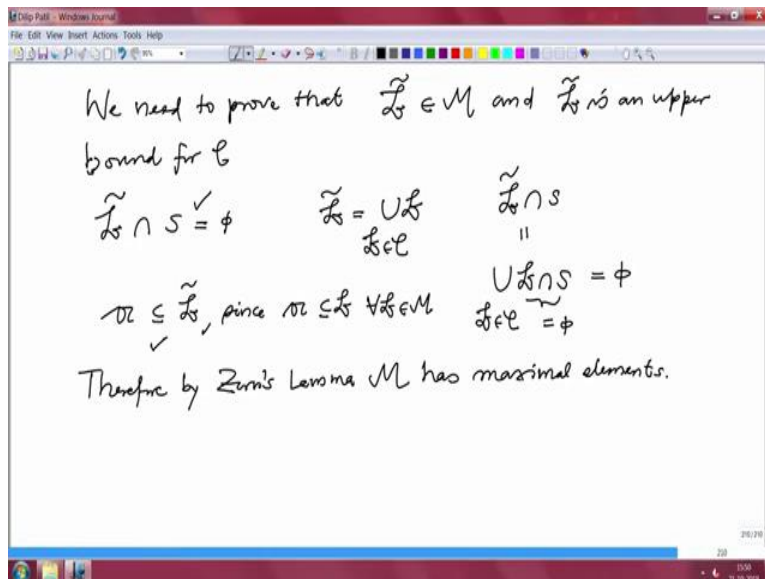 Dilip Patil - Windows Journal
File Edit View Insert Actions Tools Help
We need to prove that 𝔟̃ ∈ M and 𝔟̃ is an upper
bound for C
𝔟̃ ∩ S = φ ✓ 𝔟̃ = ∪𝔟 𝔟̃ ∩ S
𝔟∈C =
𝔞 ⊆ 𝔟̃, since 𝔞 ⊆ 𝔟 ∀ 𝔟 ∈ M ∪ 𝔟 ∩ S = φ
✓ 𝔟∈C = φ
Therefore by Zorn's Lemma M has maximal elements.
210/210
210
15:50